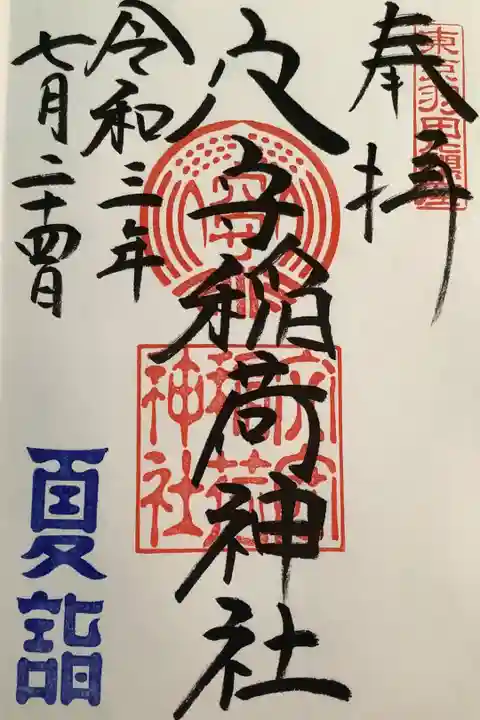 奉拝
東京羽田鎮座
穴守稲荷神社
穴守稲荷神社
令和三年
七月二十四日
夏詣